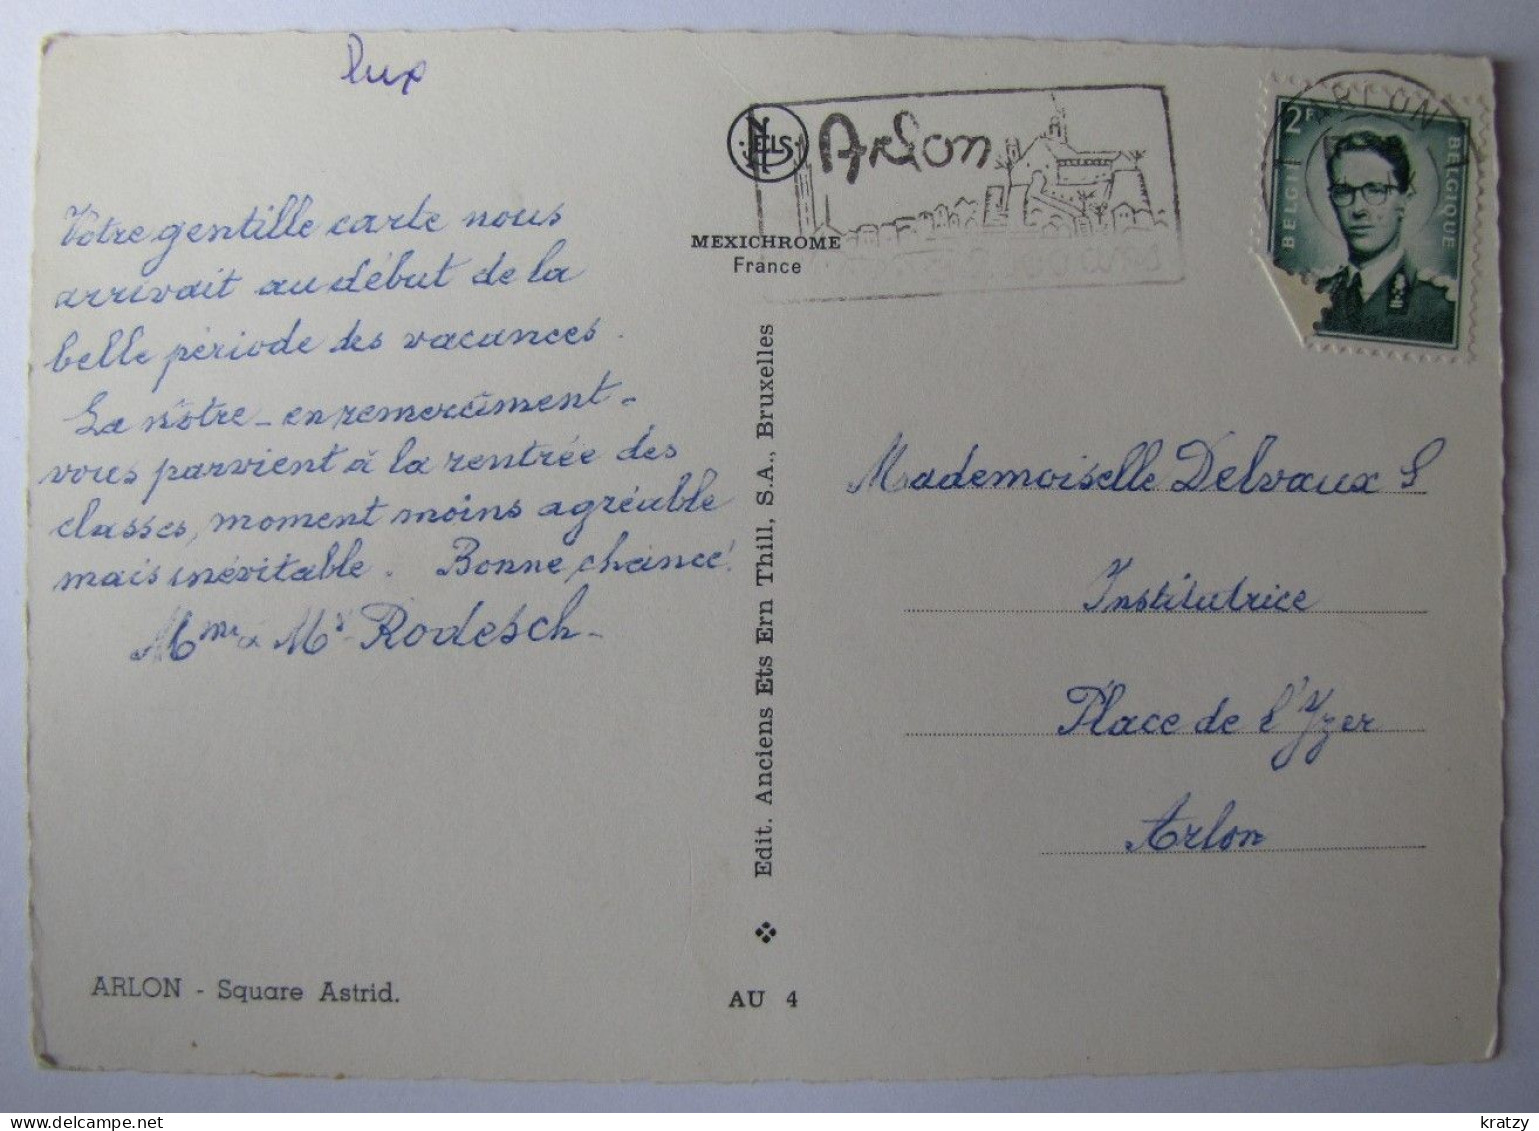 lux
Votre gentille carte nous
arrivait au début de la
belle période des vacances.
La nôtre - en remerciment -
vous parvient à la rentrée des
classes, moment moins agréable
mais inévitable. Bonne chance!
Mme & Mr Rodesch -
ARLON - Square Astrid.
NELS
MEXICHROME
France
Edit. Anciens Ets Ern Thill, S.A., Bruxelles
AU 4
Arlon
ARLON
2F
BELGIË
BELGIQUE
Mademoiselle Delvaux S
Institutrice
Place de l'Yzer
Arlon
kratzy